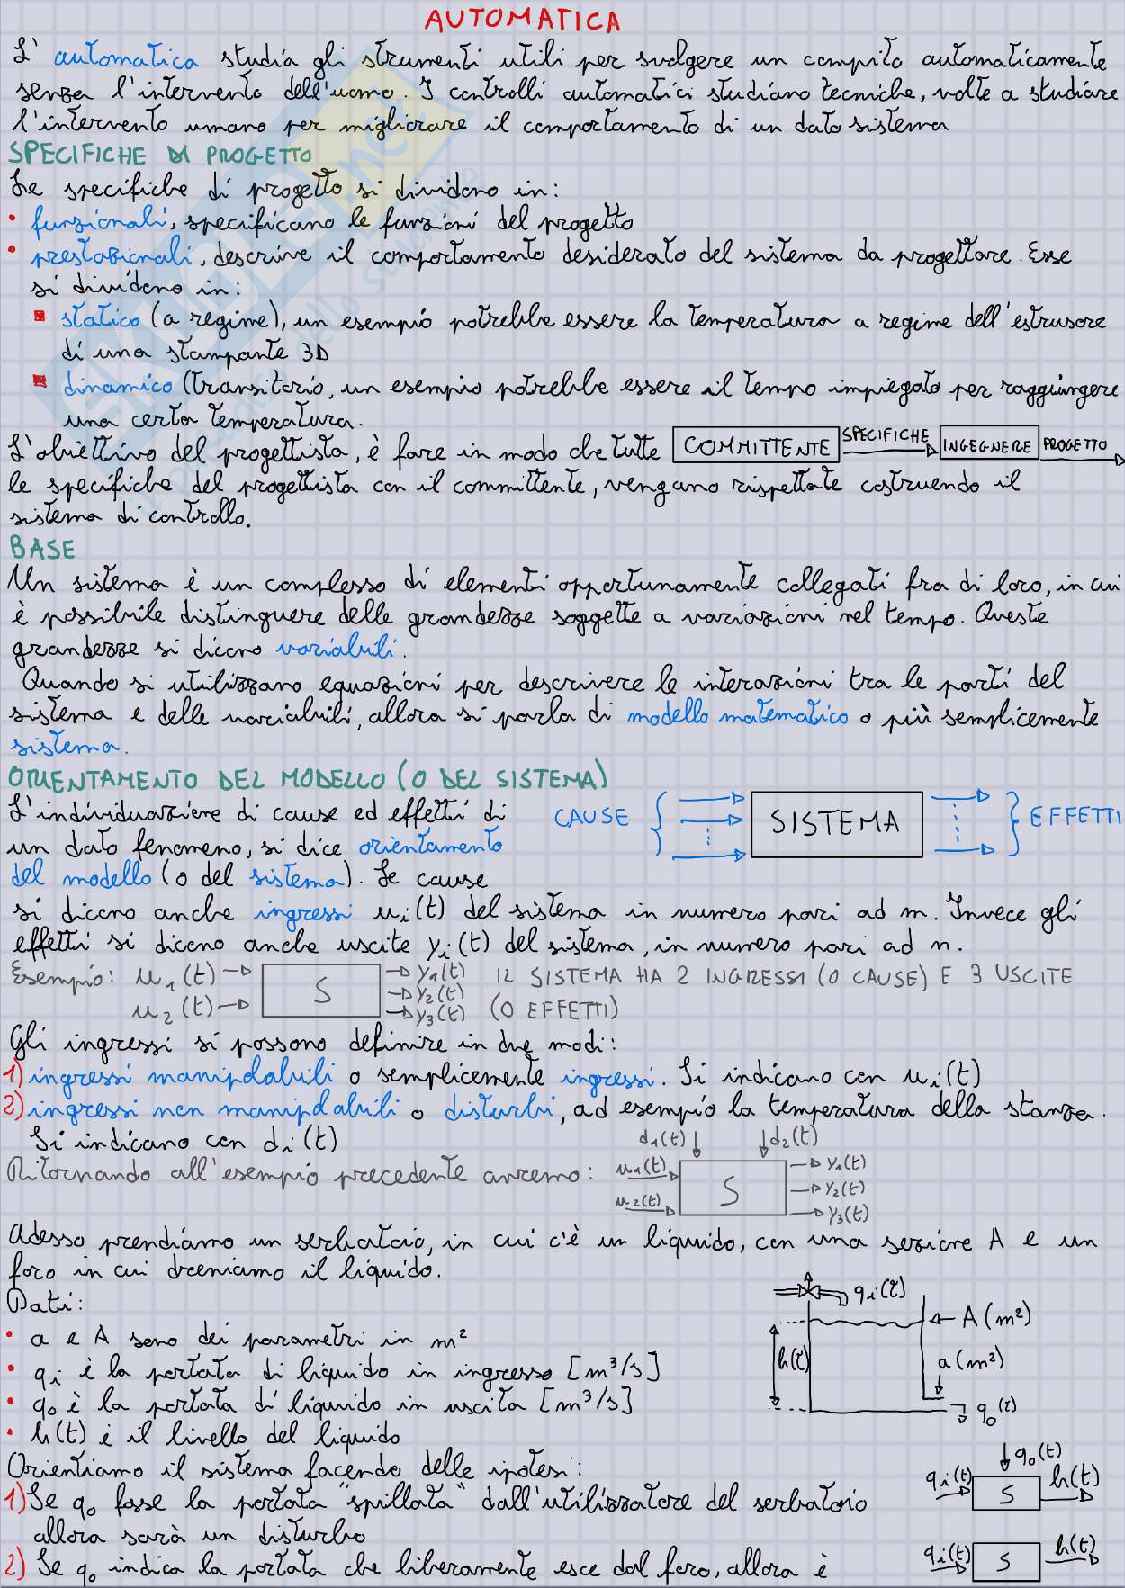 AUTOMATICA
L'automatica studia gli strumenti utili per svolgere un compito automaticamente
senza l'intervento dell'uomo. I controlli automatici studiano tecniche, volte a studiare
l'intervento umano per migliorare il comportamento di un dato sistema
SPECIFICHE DI PROGETTO
Le specifiche di progetto si dividono in:
• funzionali, specificano le funzioni del progetto
• prestazionali, descrive il comportamento desiderato del sistema da progettare. Esse
si dividono in:
▪ statico (a regime), un esempio potrebbe essere la temperatura a regime dell'estrusore
di una stampante 3D
▪ dinamico (transitorio, un esempio potrebbe essere il tempo impiegato per raggiungere
una certa temperatura.
L'obiettivo del progettista, è fare in modo che tutte
COMMITTENTE SPECIFICHE INGEGNERE PROGETTO
le specifiche del progettista con il committente, vengano rispettate costruendo il
sistema di controllo.
BASE
Un sistema è un complesso di elementi opportunamente collegati fra di loro, in cui
è possibile distinguere delle grandezze soggette a variazioni nel tempo. Queste
grandezze si dicono variabili.
Quando si utilizzano equazioni per descrivere le interazioni tra le parti del
sistema e delle variabili, allora si parla di modello matematico o più semplicemente
sistema.
ORIENTAMENTO DEL MODELLO (O DEL SISTEMA)
L'individuazione di cause ed effetti di
un dato fenomeno, si dice orientamento
del modello (o del sistema). Le cause
CAUSE SISTEMA EFFETTI
si dicono anche ingressi ui(t) del sistema in numero pari ad m. Invece gli
effetti si dicono anche uscite yi(t) del sistema, in numero pari ad n.
Esempio: u1(t) S y1(t) IL SISTEMA HA 2 INGRESSI (O CAUSE) E 3 USCITE
u2(t) y2(t) y3(t) (O EFFETTI)
Gli ingressi si possono definire in due modi:
1) ingressi manipolabili o semplicemente ingressi. Si indicano con ui(t)
2) ingressi non manipolabili o disturbi, ad esempio la temperatura della stanza.
Si indicano con di(t)
d1(t) d2(t)
Ritornando all'esempio precedente avremo: u1(t) S y1(t)
u2(t) y2(t)
y3(t)
Adesso prendiamo un serbatoio, in cui c'è un liquido, con una sezione A e un
foro in cui dreniamo il liquido.
Dati:
qi(t)
• a e A sono dei parametri in m²
A (m²)
• qi è la portata di liquido in ingresso [m³/s]
h(t) a (m²)
• qo è la portata di liquido in uscita [m³/s]
qo(t)
• h(t) è il livello del liquido
Orientiamo il sistema facendo delle ipotesi:
qo(t)
1) Se qo fosse la portata "spillata" dall'utilizzatore del serbatoio
qi(t) S h(t)
allora sarà un disturbo
2) Se qo indica la portata che liberamente esce dal foro, allora è
qi(t) S h(t)